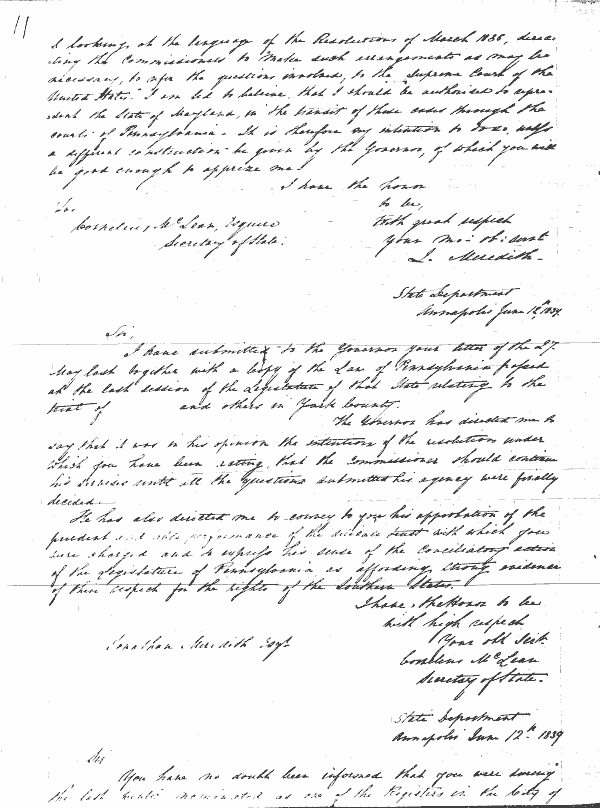 11
looking at the language of the Resolutions of March 1838, direc-
ting the Commissioners to "make such arrangements as may be
necessary, to refer the questions involved, to the Supreme Court of the
United States" I am led to believe, that I should be authorised to repre-
sent the State of Maryland, in the transit of these cases through the
courts of Pennsylvania. It is therefore my intention to do so, unless
a different construction be given by the Governor, of which you will
be good enough to apprize me.
I have the honor
to be,
To
Cornelius McLean, Esquire
with great respect
Secretary of State.
your
J. Meredith.
State Department
Annapolis June 12th 1839.
Sir,
I have submitted to the Governor your letter of the 27
May last together with a Copy of the Law of Pennsylvania passed
at the last session of the Legislature of that State relating to the
trial of and others in York County.
The Governor has directed me to
say that it was in his opinion the intention of the resolution under
which you have been acting, that the Commissioner should continue
his services until all the questions submitted his agency were finally
decided.
He has also directed me to convey to you his approbation of the
prudent and performance of the delicate trust with which you
were charged and to express his sense of the Conciliatory action
of the Legislature of Pennsylvania as affording strong evidence
of their respect for the rights of the Southern States.
I have the Honor to be
with high respect
Jonathan Meredith Esqr
Your obt Sert.
Cornelius McLean
Secretary of State.
State Department
Annapolis June 12th 1839
Sir
You have no doubt been informed that you were during
the last nominated as one of the Registers in the City of